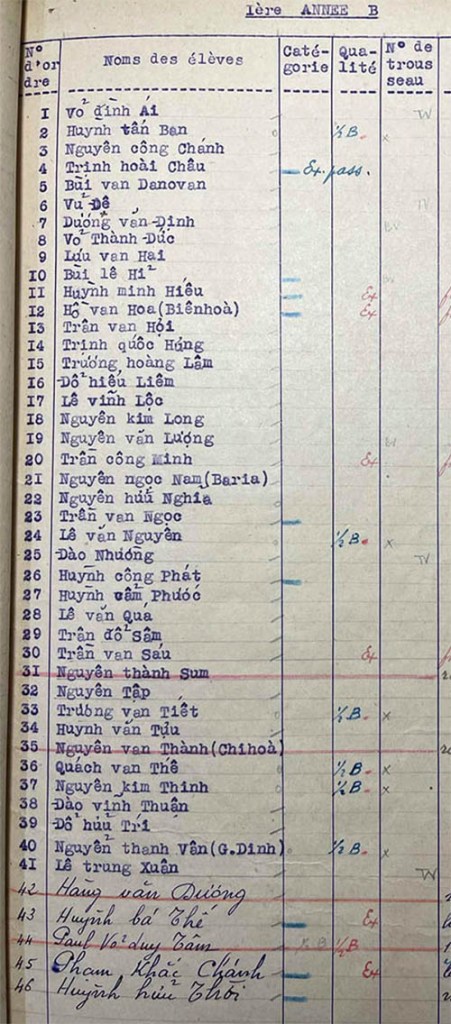 Ière ANNEE B
N° d'ordre Noms des élèves Catégorie Qualité N° de trousseau
1 Võ đình Ái TV
2 Huỳnh tấn Ban ½B. x
3 Nguyên công Chánh
4 Trinh hoài Châu Ex. pass.
5 Bùi van Danovan
6 Vũ Đê TV
7 Dương văn Dinh
8 Võ Thành Đức
9 Lưu van Hai
10 Bùi lê Hỉ
11 Huỳnh minh Hiếu Ex
12 Hồ van Hoa(Biênhoà) Ex
13 Trần van Hội
14 Trinh quốc Húng
15 Trương hoàng Lâm
16 Đỗ hiếu Liêm
17 Lê vĩnh Lộc
18 Nguyên kim Long
19 Nguyên văn Lượng
20 Trần công Minh Ex
21 Nguyên ngọc Nam(Baria)
22 Nguyên hữu Nghia
23 Trần van Ngọc
24 Lê văn Nguyên ½B. x
25 Đào Nhường TV
26 Huỳnh công Phát
27 Huỳnh cẩm Phước
28 Lê văn Quá
29 Trần đỗ Sâm
30 Trần van Sáu Ex
31 Nguyên thành Sum
32 Nguyên Tập
33 Trương vạn Tiết ½B. x
34 Huynh văn Tựu
35 Nguyên van Thành(Chihoà)
36 Quách van Thê ½B. x
37 Nguyên kim Thinh ½B. x
38 Đào vinh Thuân
39 Đỗ hữu Trí
40 Nguyễn thanh Vân(G.Dinh) ½B. x
41 Lê trung Xuân TV
42 Hàng văn Dương
43 Huỳnh bá Thế Ex
44 Paul Võ duy Tâm ½B
45 Pham Khắc Chánh Ex
46 Huỳnh hữu Thời